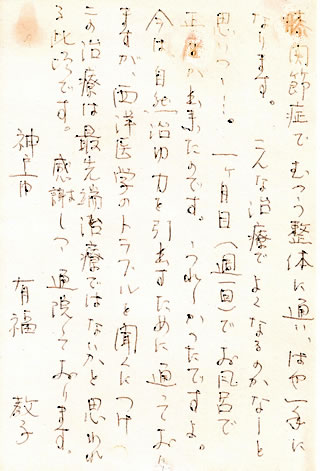 膝関節症でむつう整体に通い、はや一年に
なります。 こんな治療でよくなるのかなーと
思いつつ…。 一ヶ月目(週一回)でお風呂で
正座が出来たのです。 うれしかったですよ。
今は自然治ゆ力を引出すために通っており
ますが、西洋医学のトラブルを聞くにつけ
この治療は最先端治療ではないかと思われ
る此頃です。 感謝しつつ通院しております。
神戸市 有福 敦子